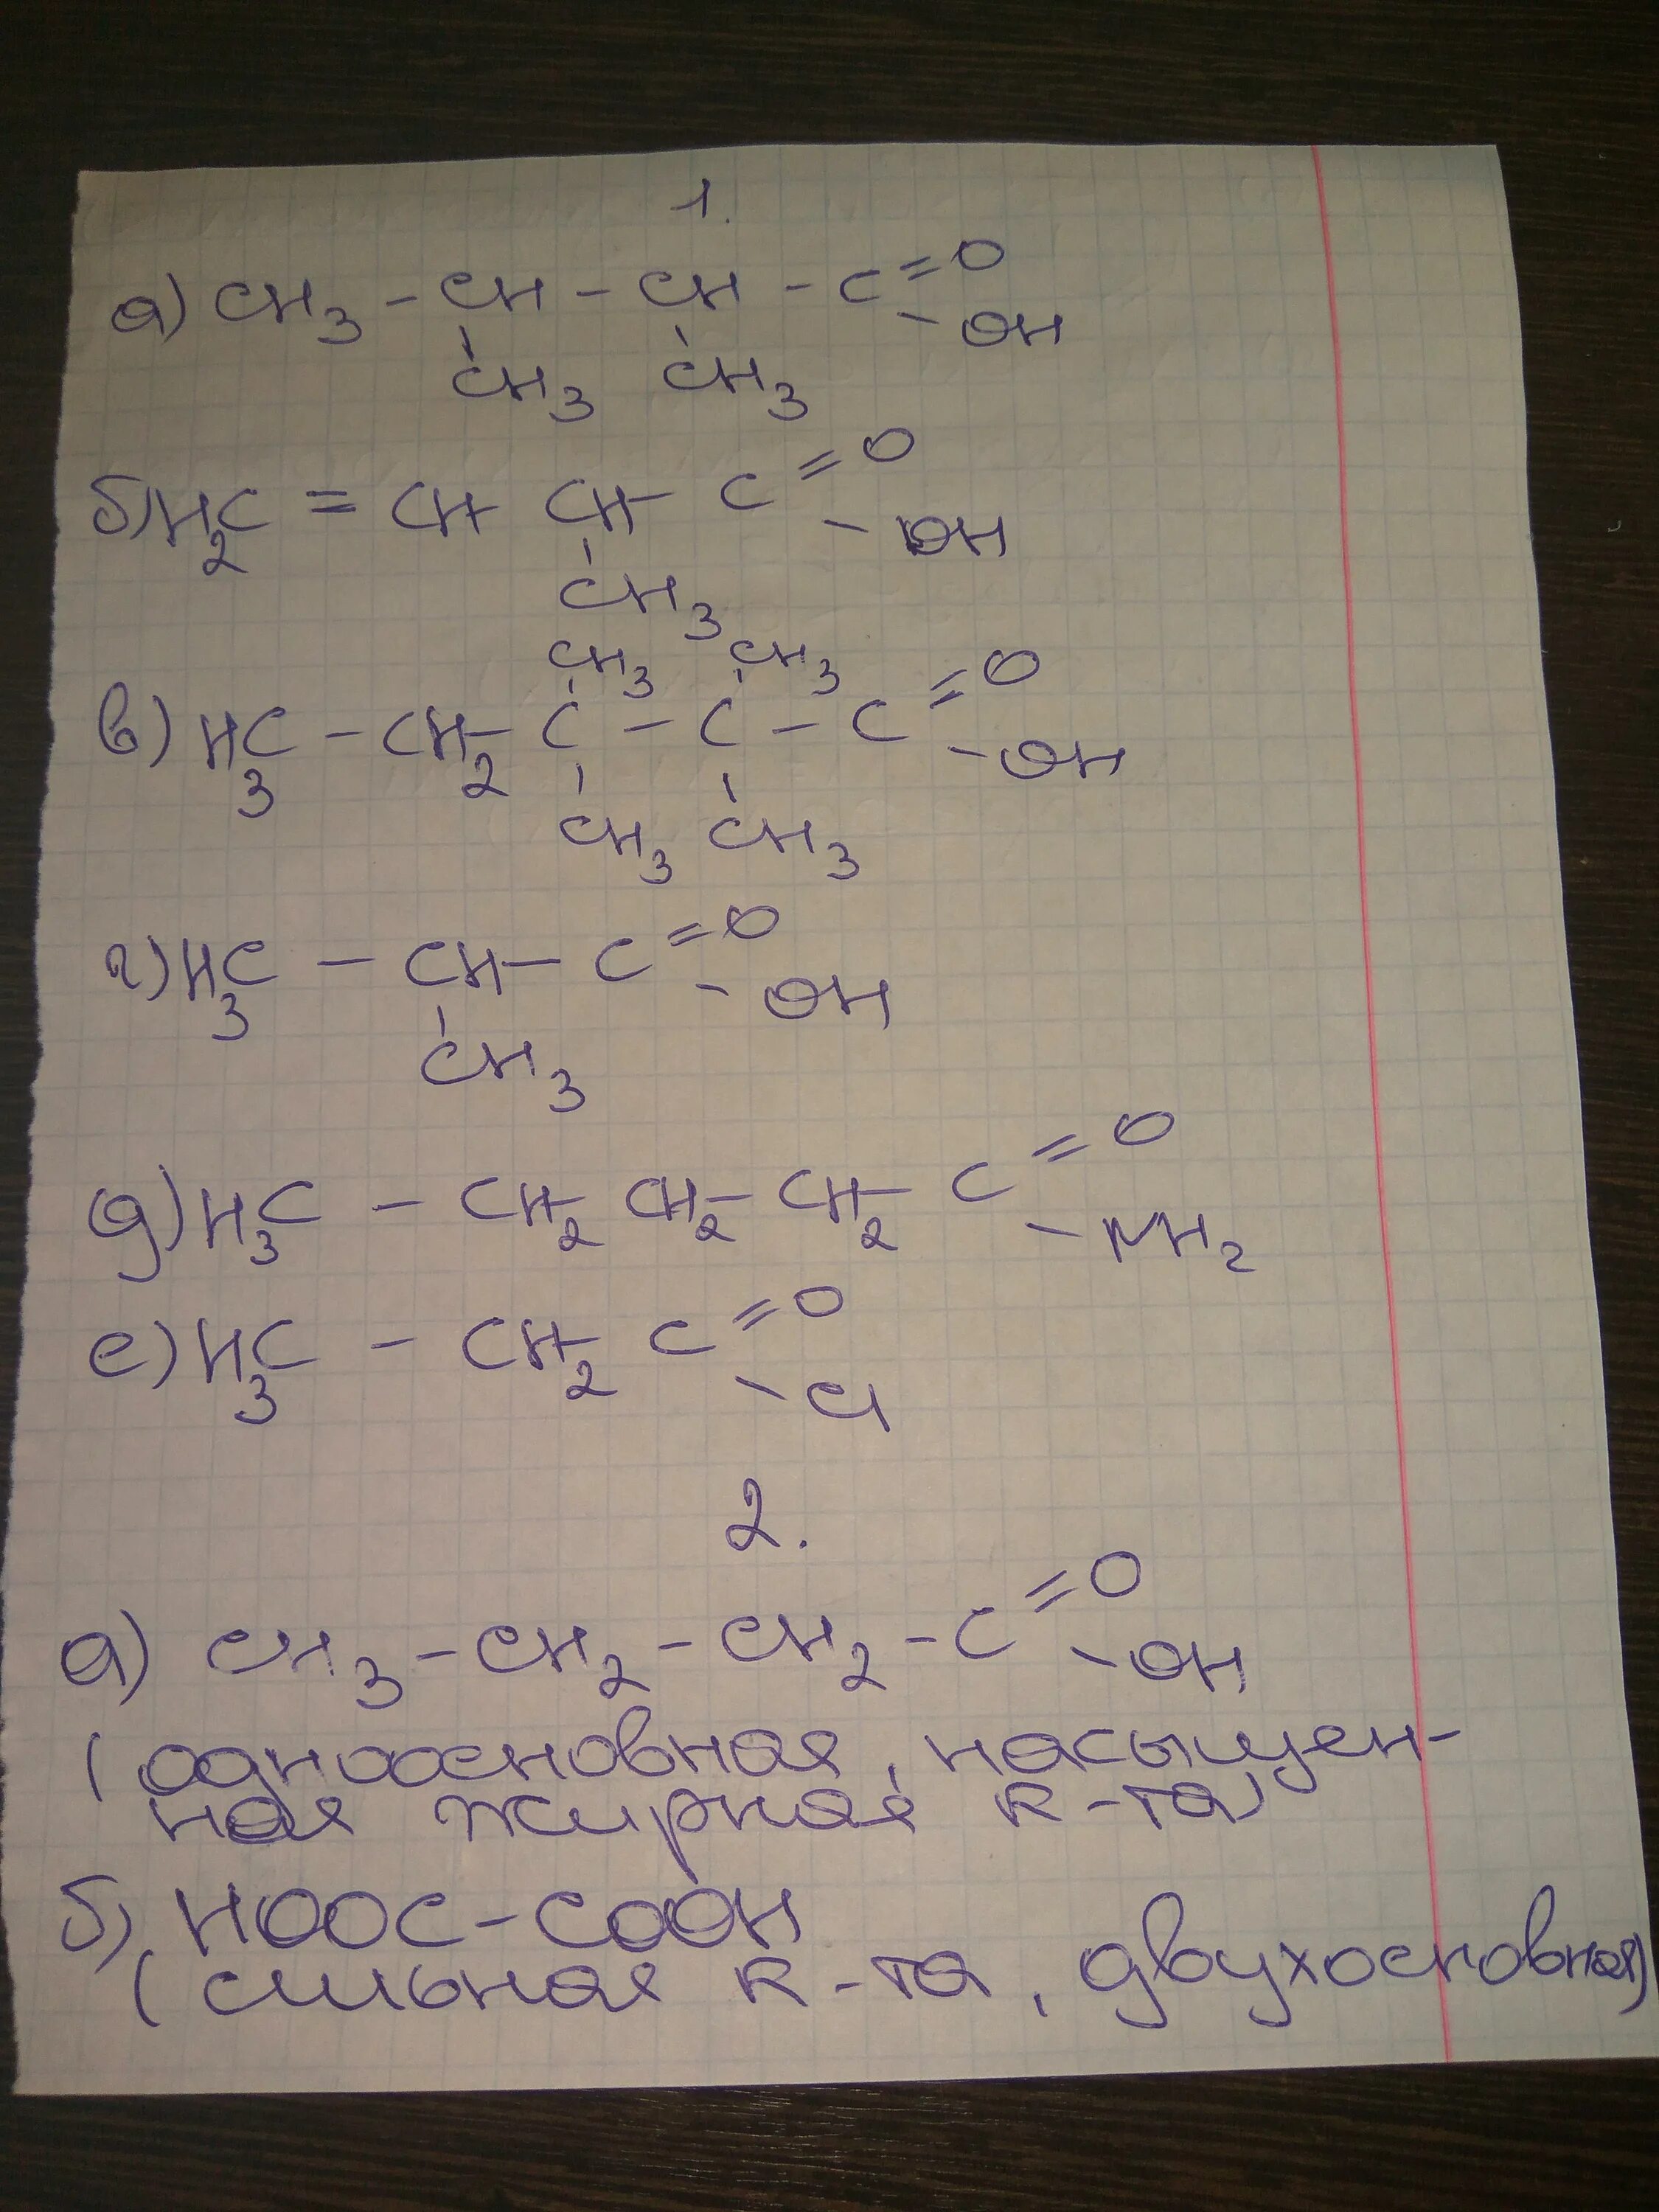 1.
а) CH3 - CH - CH - C =O
- OH
CH3 CH3
б) H2C = CH CH - C =O
- OH
CH3
CH3 CH3
в) H3C - CH2 - C - C - C =O
- OH
CH3 CH3
г) H3C - CH - C =O
- OH
CH3
д) H3C - CH2 - CH2 - CH2 - C =O
- NH2
е) H3C - CH2 - C =O
- Cl
2.
а) CH3 - CH2 - CH2 - C =O
- OH
(одноосновная, насыщен-
ная жирная к-та)
б) HOOC - COOH
(сильная к-та, двухосновная)